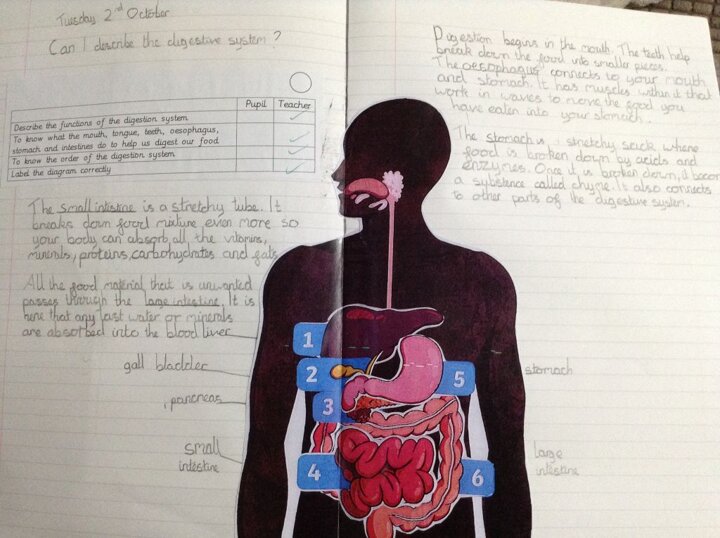 Tuesday 2nd October
Can I describe the digestive system?
Pupil Teacher
Describe the functions of the digestion system
To know what the mouth, tongue, teeth, oesophagus,
stomach and intestines do to help us digest our food
To know the order of the digestion system
Label the diagram correctly
The small intestine is a stretchy tube. It
breaks down food mixture even more so
your body can absorb all the vitamins,
minerals, proteins, carbohydrates and fats
All the food material that is unwanted
passes through the large intestine. It is
here that any last water or minerals
are absorbed into the blood
liver
gall bladder
pancreas
small
intestine
Digestion begins in the mouth. The teeth help
break down the food into smaller pieces.
The oesophagus connects to your mouth
and stomach. It has muscles within it that
work in waves to move the food you
have eaten into your stomach.
The stomach is stretchy sack where
food is broken down by acids and
enzymes. Once it is broken down, it becom
a substence called chyme. It also connects
to other parts of the digestive system.
1
2
3
4
5
6
stomach
large
intestine